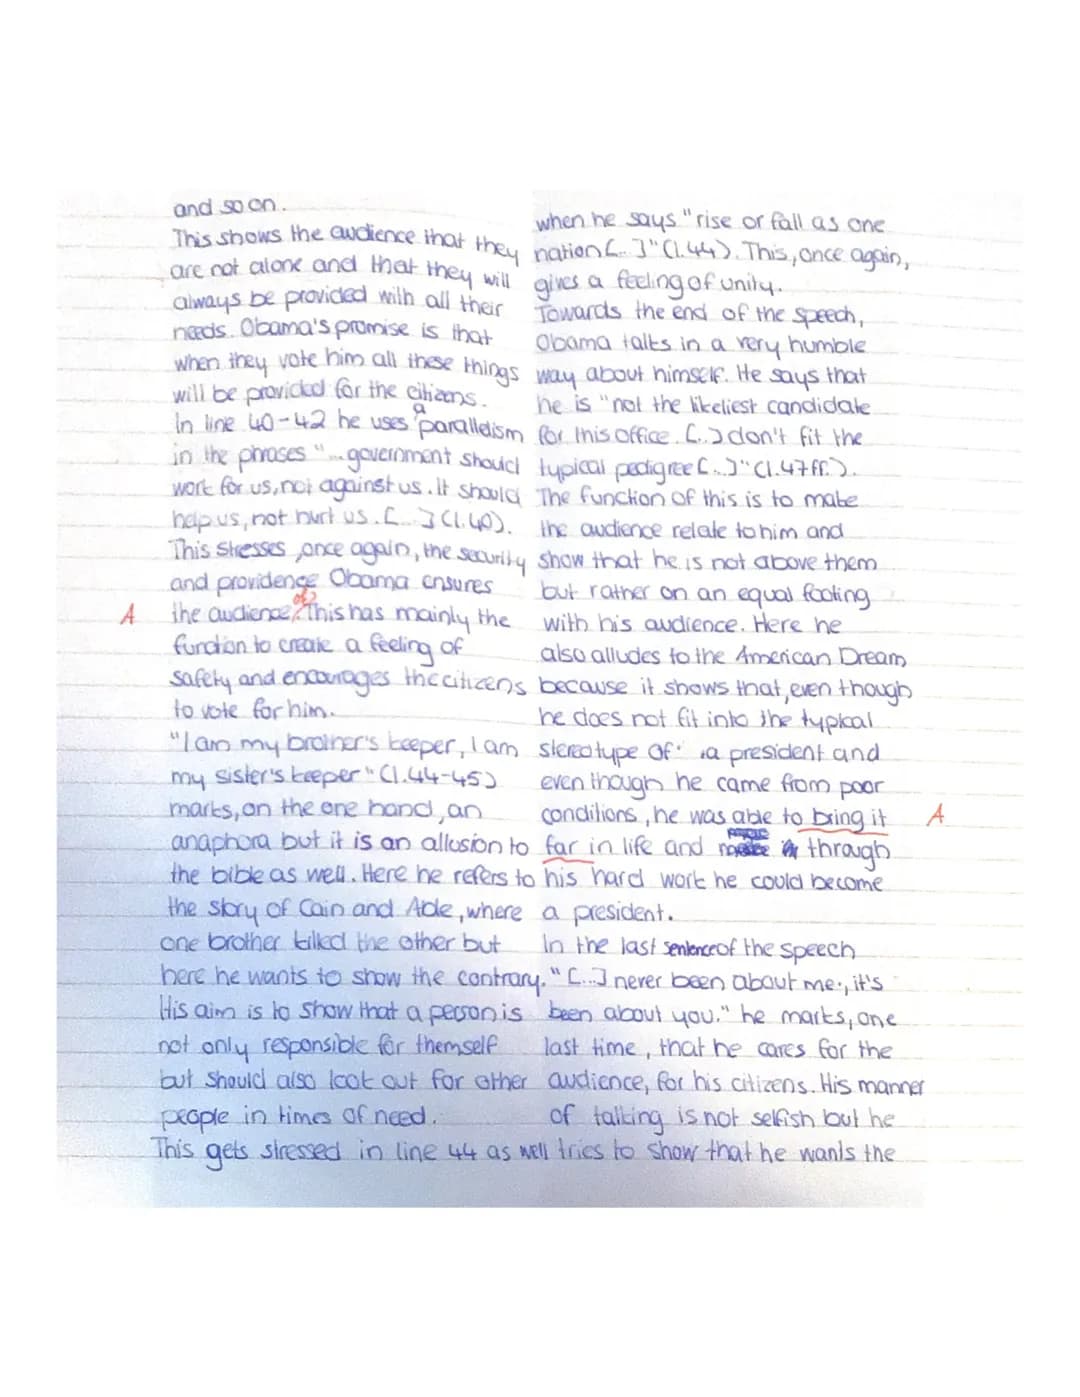 and so on.
This shows the audience that they
are not alone and that they will
always be provided with all their
needs. Obama's promise is that
when they vote him all these things
will be provided for the citizens.
a
In line 40-42 he uses parallelism
in the phrases "...government should
work for us, not against us. It should
help us, not hurt us. [...] (l.40).
This stresses, once again, the security
and providence Obama ensures
of
A the audience. This has mainly the
function to create a feeling of
safety and encourages the citizens
to vote for him.
"I am my brother's keeper, I am
my sister's keeper" (l.44-45)
marks, on the one hand, an
anaphora but it is an allusion to
the bible as well. Here he refers to
the story of Cain and Able, where
one brother killed the other but
here he wants to show the contrary.
His aim is to show that a person is
not only responsible for themself
but should also look out for other
people in times of need.
This gets stressed in line 44 as well
when he says "rise or fall as one
nation [...]" (l.44). This, once again,
gives a feeling of unity.
Towards the end of the speech,
Obama talks in a very humble
way about himself. He says that
he is "not the likeliest candidate
for this office. [...] don't fit the
typical pedigree [...]" (l.47ff.).
The function of this is to make
the audience relate to him and
show that he is not above them
but rather on an equal footing
with his audience. Here he
also alludes to the American Dream
because it shows that, even though
he does not fit into the typical
stereotype of a president and
even though he came from poor
conditions, he was able to bring it A
far in life and through
his hard work he could become
a president.
In the last sentence of the speech
"[...] never been about me, it's
been about you." he marks, one
last time, that he cares for the
audience, for his citizens. His manner
of talking is not selfish but he
tries to show that he wants the